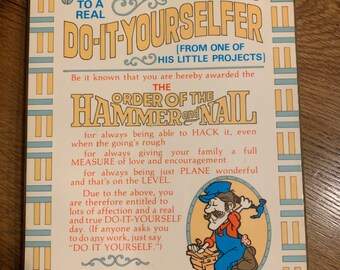 TO A
REAL
DO-IT-YOURSELFER
(FROM ONE OF
HIS LITTLE PROJECTS)
Be it known that you are hereby awarded the
THE
ORDER OF THE
HAMMER and NAIL
for always being able to HACK it, even
when the going's rough
for always giving your family a full
MEASURE of love and encouragement
for always being just PLANE wonderful
and that's on the LEVEL.
Due to the above, you
are therefore entitled to
lots of affection and a real
and true DO-IT-YOURSELF
day. (If anyone asks you
to do any work, just say
"DO IT YOURSELF.")